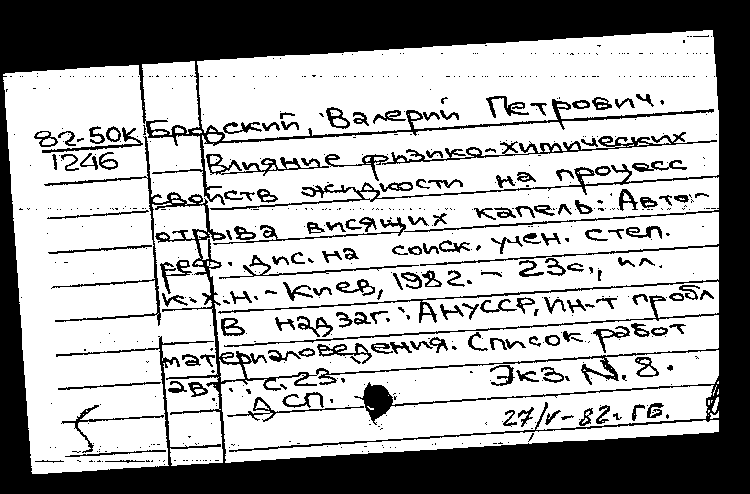 82-50К Бродский, Валерий Петрович.
1246 Влияние физико-химических
свойств жидкости на процесс
отрыва висящих капель: Авто-
реф. дис. на соиск. учен. степ.
к.х.н. - Киев, 1982. - 23с., ил.
В надзаг.: АНУССР, Ин-т пробл
материаловедения. Список работ
авт.: с. 23. Экз. N. 8.
ДСП.
27/V-82г. ГБ.